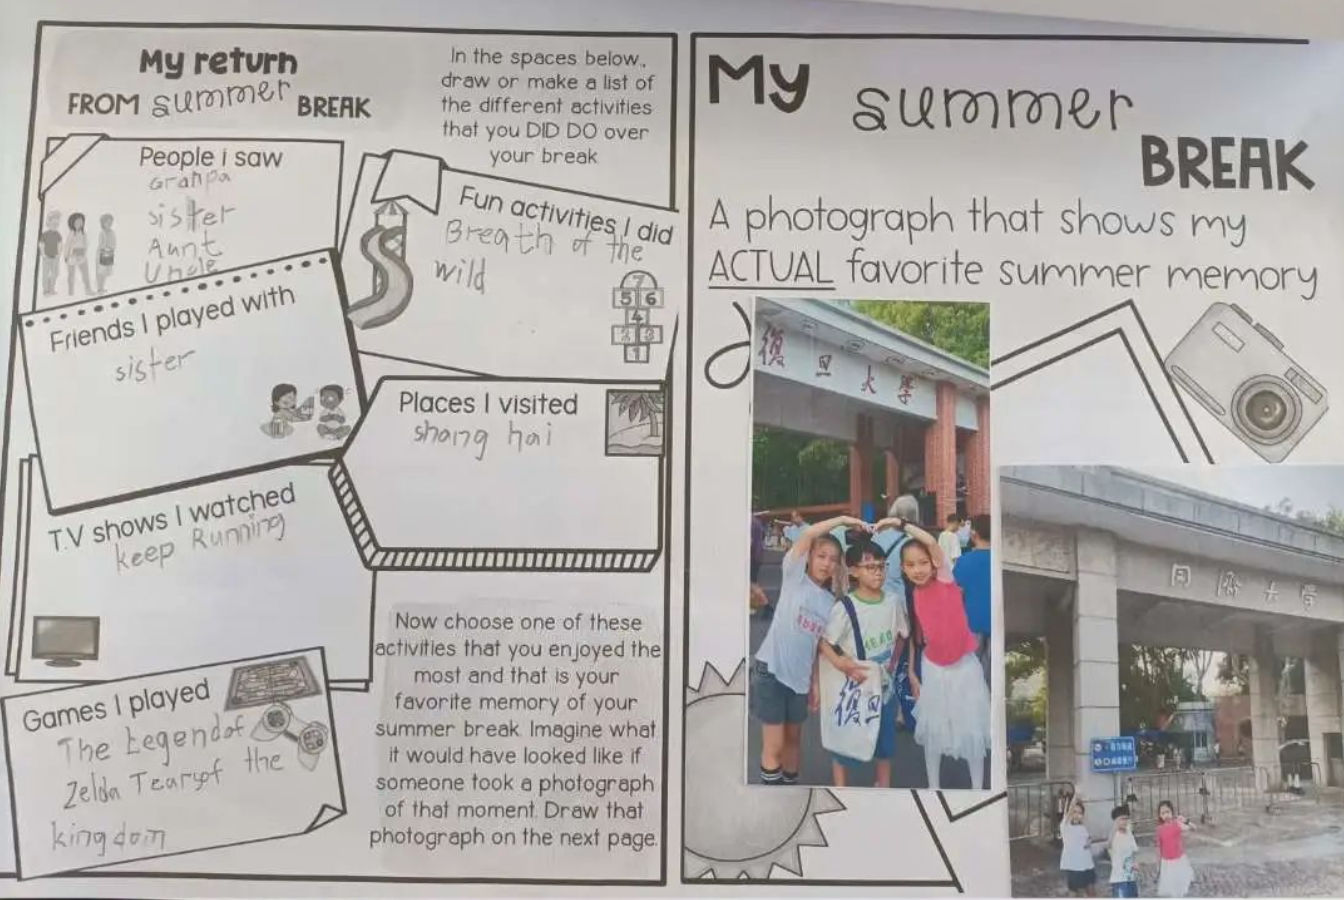 My return
FROM summer BREAK
In the spaces below,
draw or make a list of
the different activities
that you DID DO over
your break
People i saw
Granpa
sister
Aunt
Uncle
Fun activities I did
Breath of the
wild
7
5 6
4
2 3
1
Friends I played with
sister
Places I visited
shang hai
T.V shows I watched
keep Running
Games I played
The Legend of
Zelda Tears of the
kingdom
Now choose one of these
activities that you enjoyed the
most and that is your
favorite memory of your
summer break. Imagine what
it would have looked like if
someone took a photograph
of that moment. Draw that
photograph on the next page.
My summer
BREAK
A photograph that shows my
ACTUAL favorite summer memory
復旦大學
復旦
同濟大學